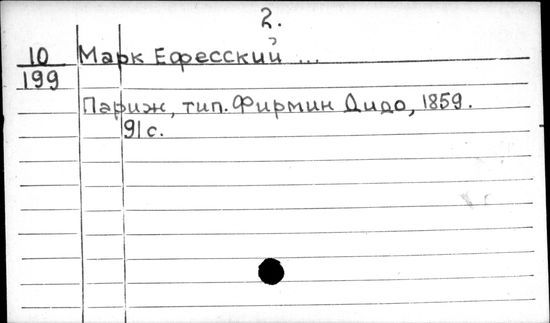 2.
10 Марк Ефесский ...
199
Париж, тип. Фирмин Дидо, 1859.
91 с.